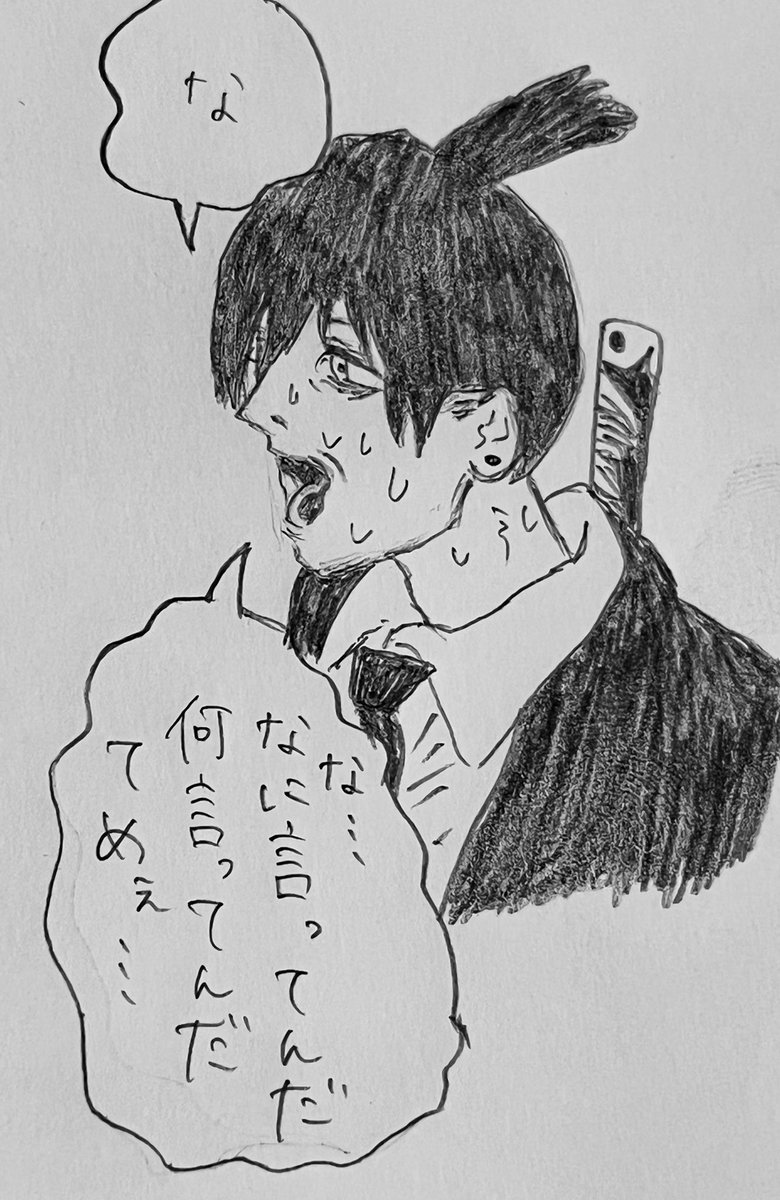 な
な…
なに言ってんだ
何言ってんだ
てめぇ…